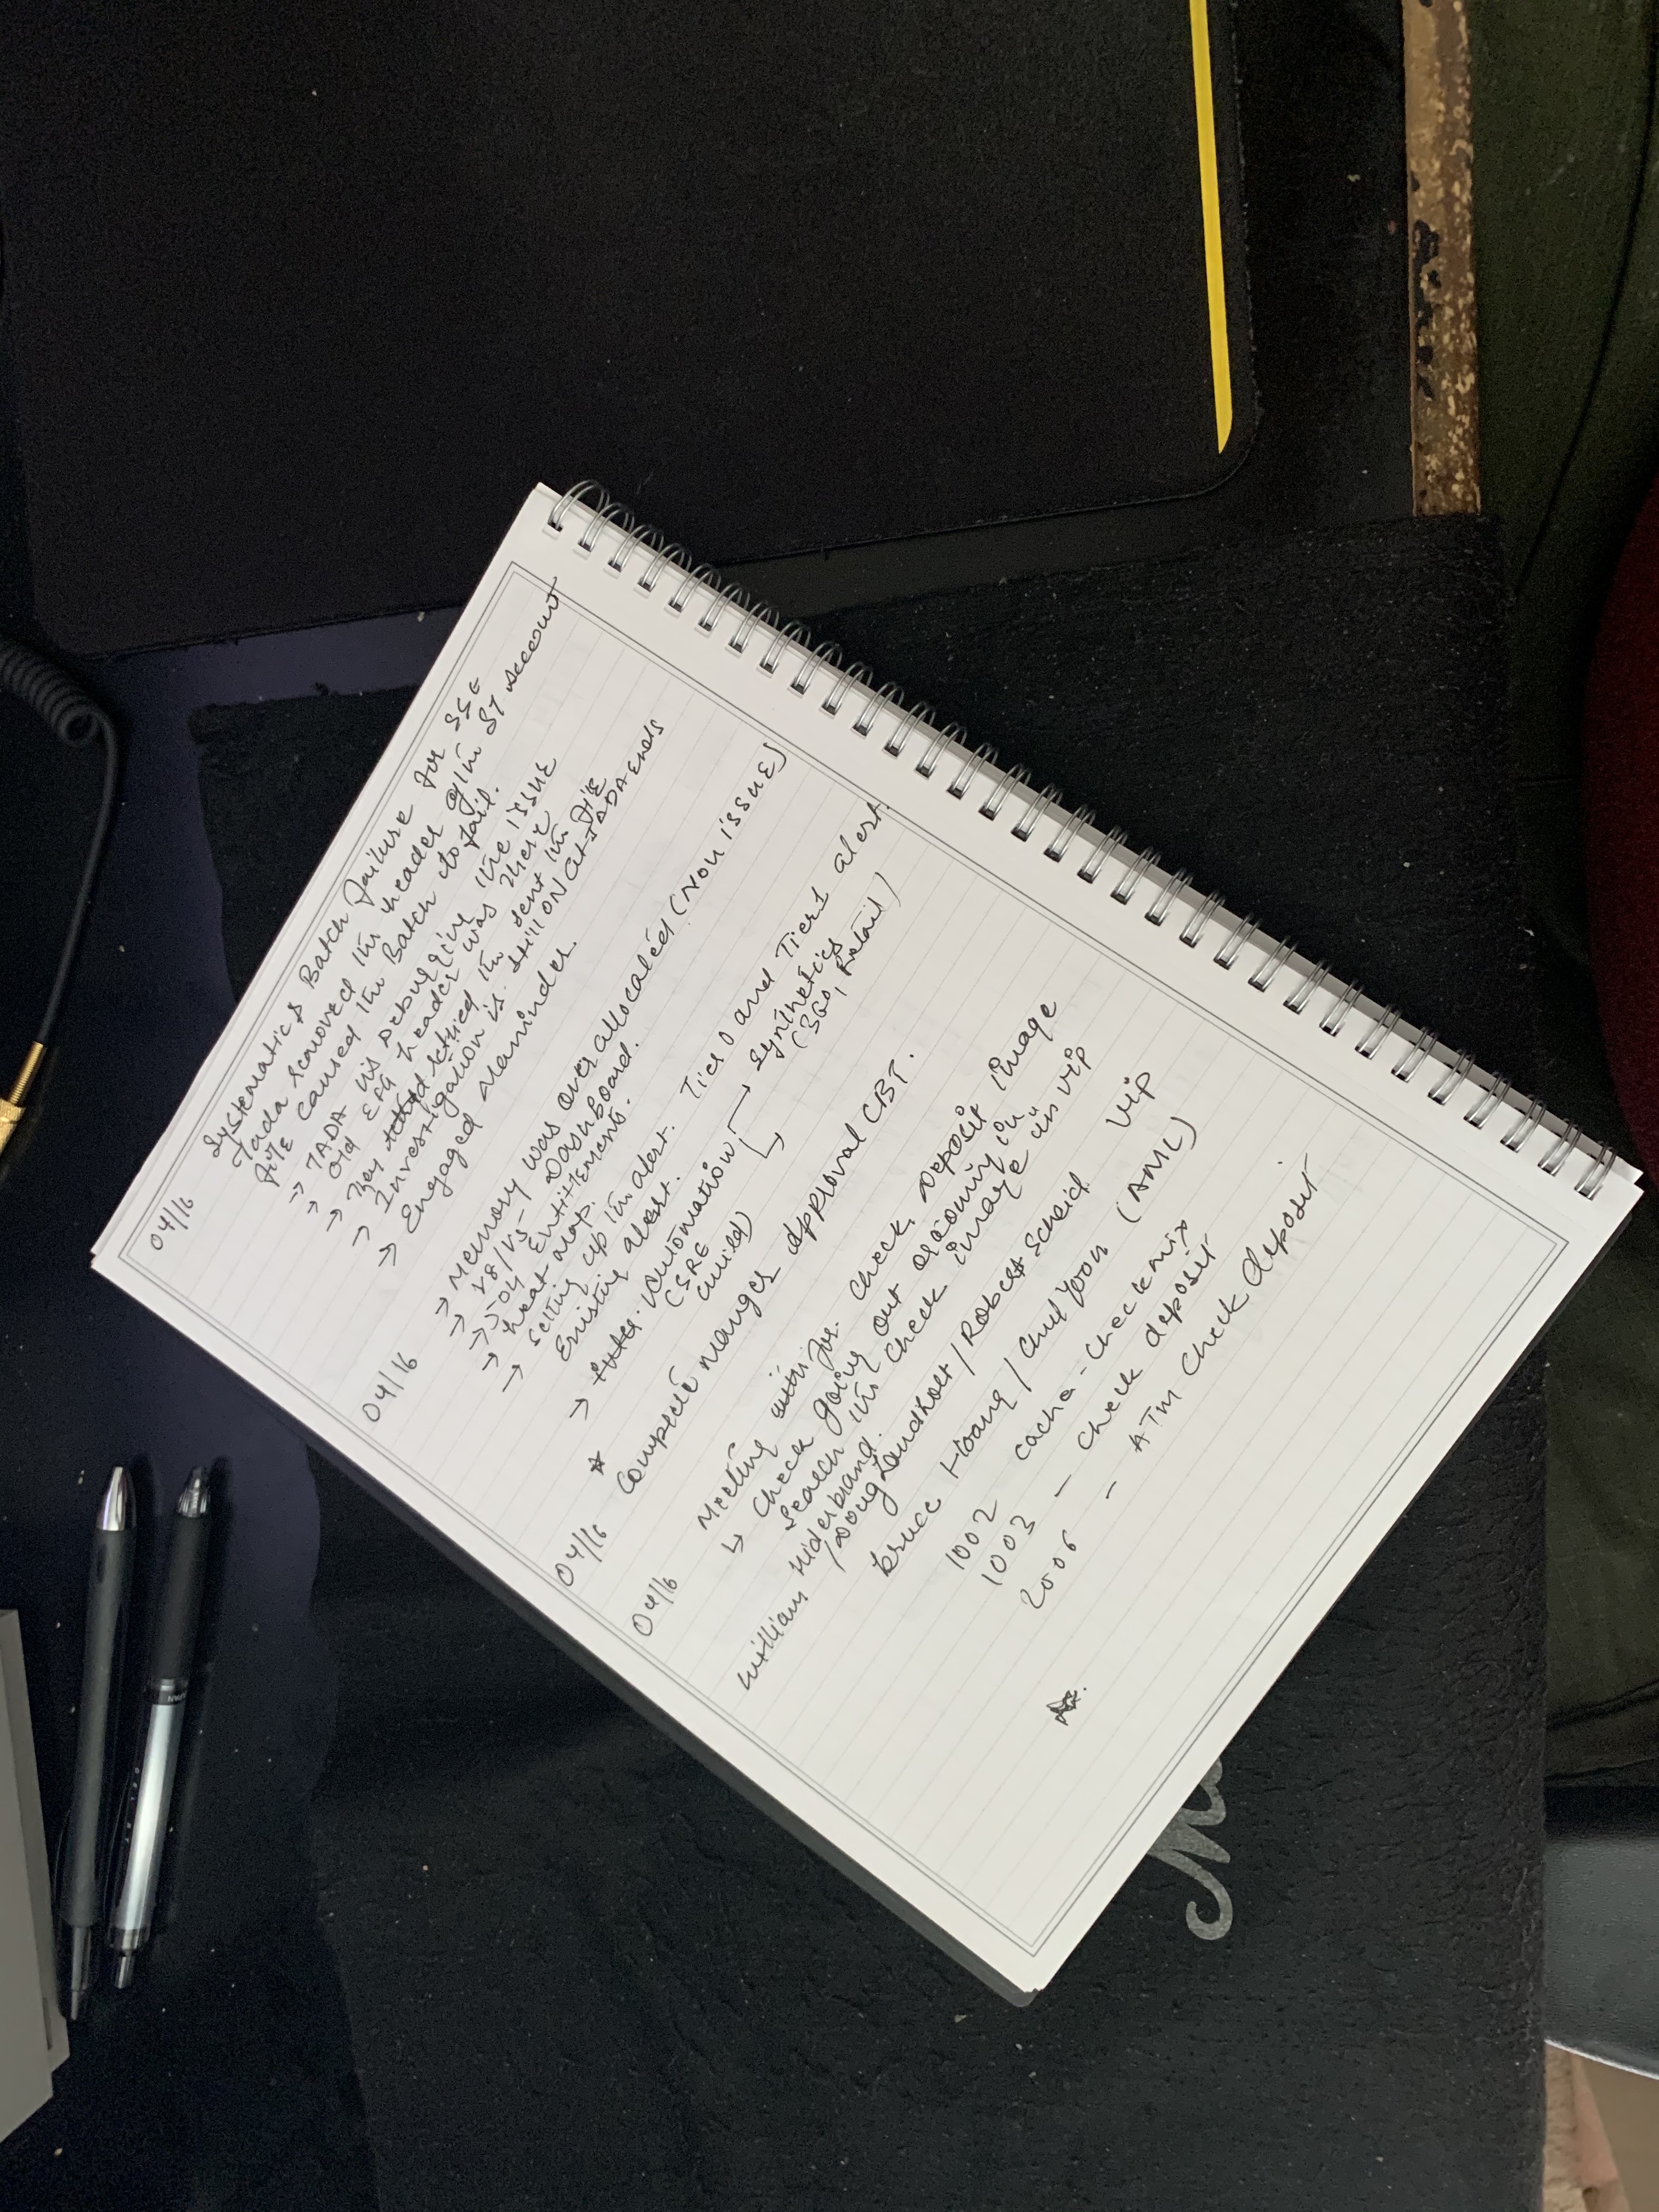 04/16
Systematics Batch failure for SSE
Tada removed the header of the ST account
file caused the Batch to fail.
→ TADA is Debugging the issue
old EFG header was there
→ They retried the sent the file
→ Investigation is still ON at TADA ends
→ Engaged Maninder.
04/16
→ Memory was over allocated (Non issue)
→ V8/V5- Dashboard.
→ Joy Entitlements.
→ heat map.
→ Setting up the alert. Tier 0 and Tier 1 alert.
Existing alert.
→ Automation → Synthetics
(SRE (360, Retail)
04/16
Complete manger approval CBT.
04/16
Meeting with for. Check, Deposit image
↳ Check going out incoming in
Search the check image in vip
William Hiderbrand.
/ Doug Landholt / Robert Scheid Vip
Bruce Hoang / Chul Yoon (AML)
1002 cacha - check mix
1003 - check deposit
2006 - ATM check deposit